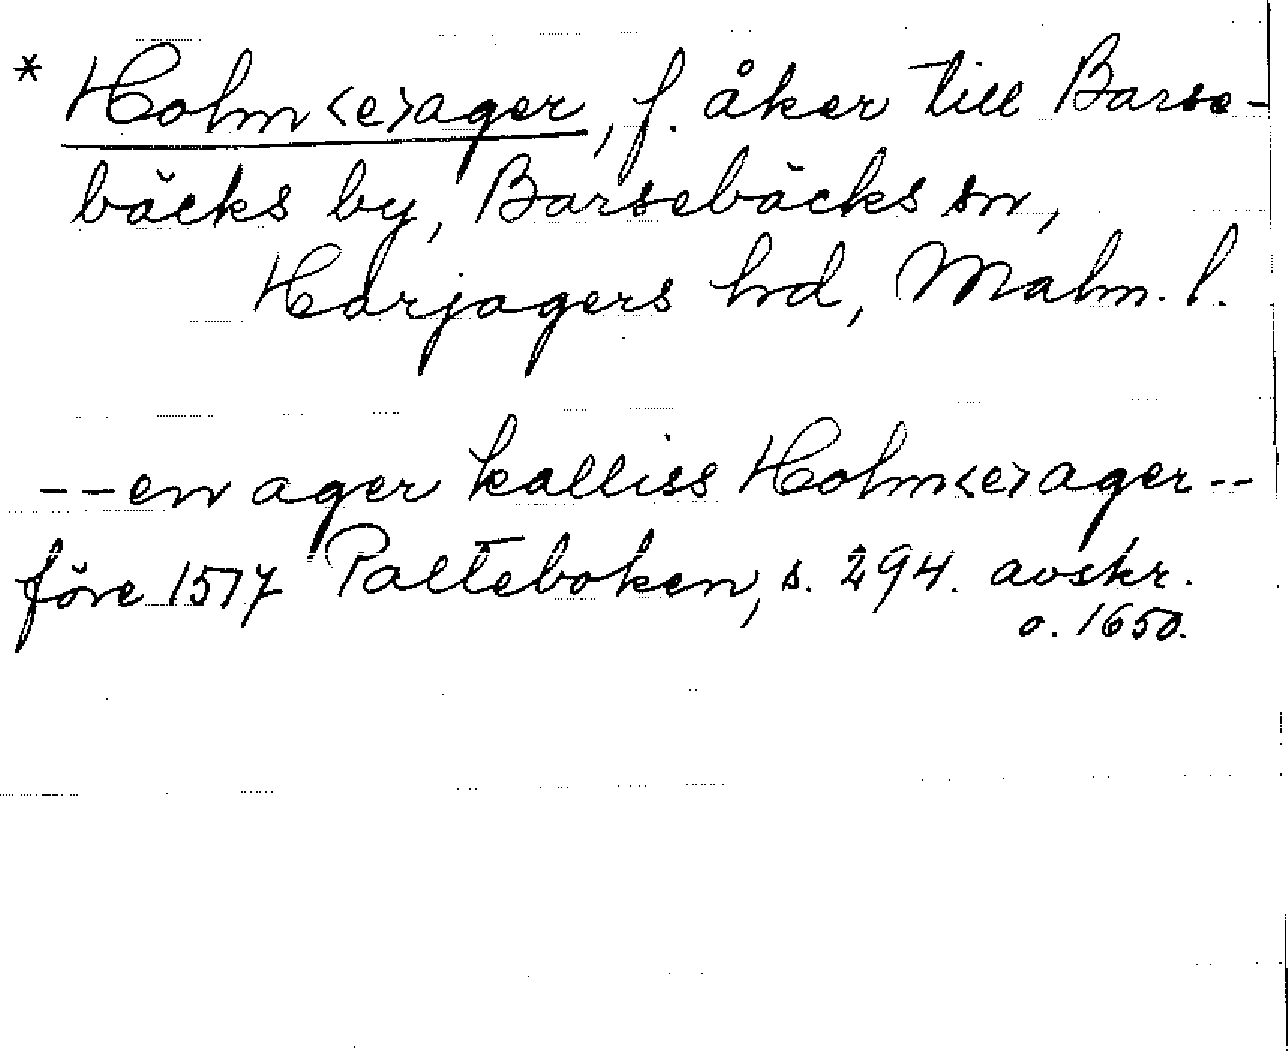 * Holm<e>ager, f. åker till Barse-
bäcks by, Barsebäcks sn,
Harjagers hd, Malm. l.
--en ager kalliss Holm<e>ager--
före 1517 Palteboken, s. 294. avskr.
o. 1650.